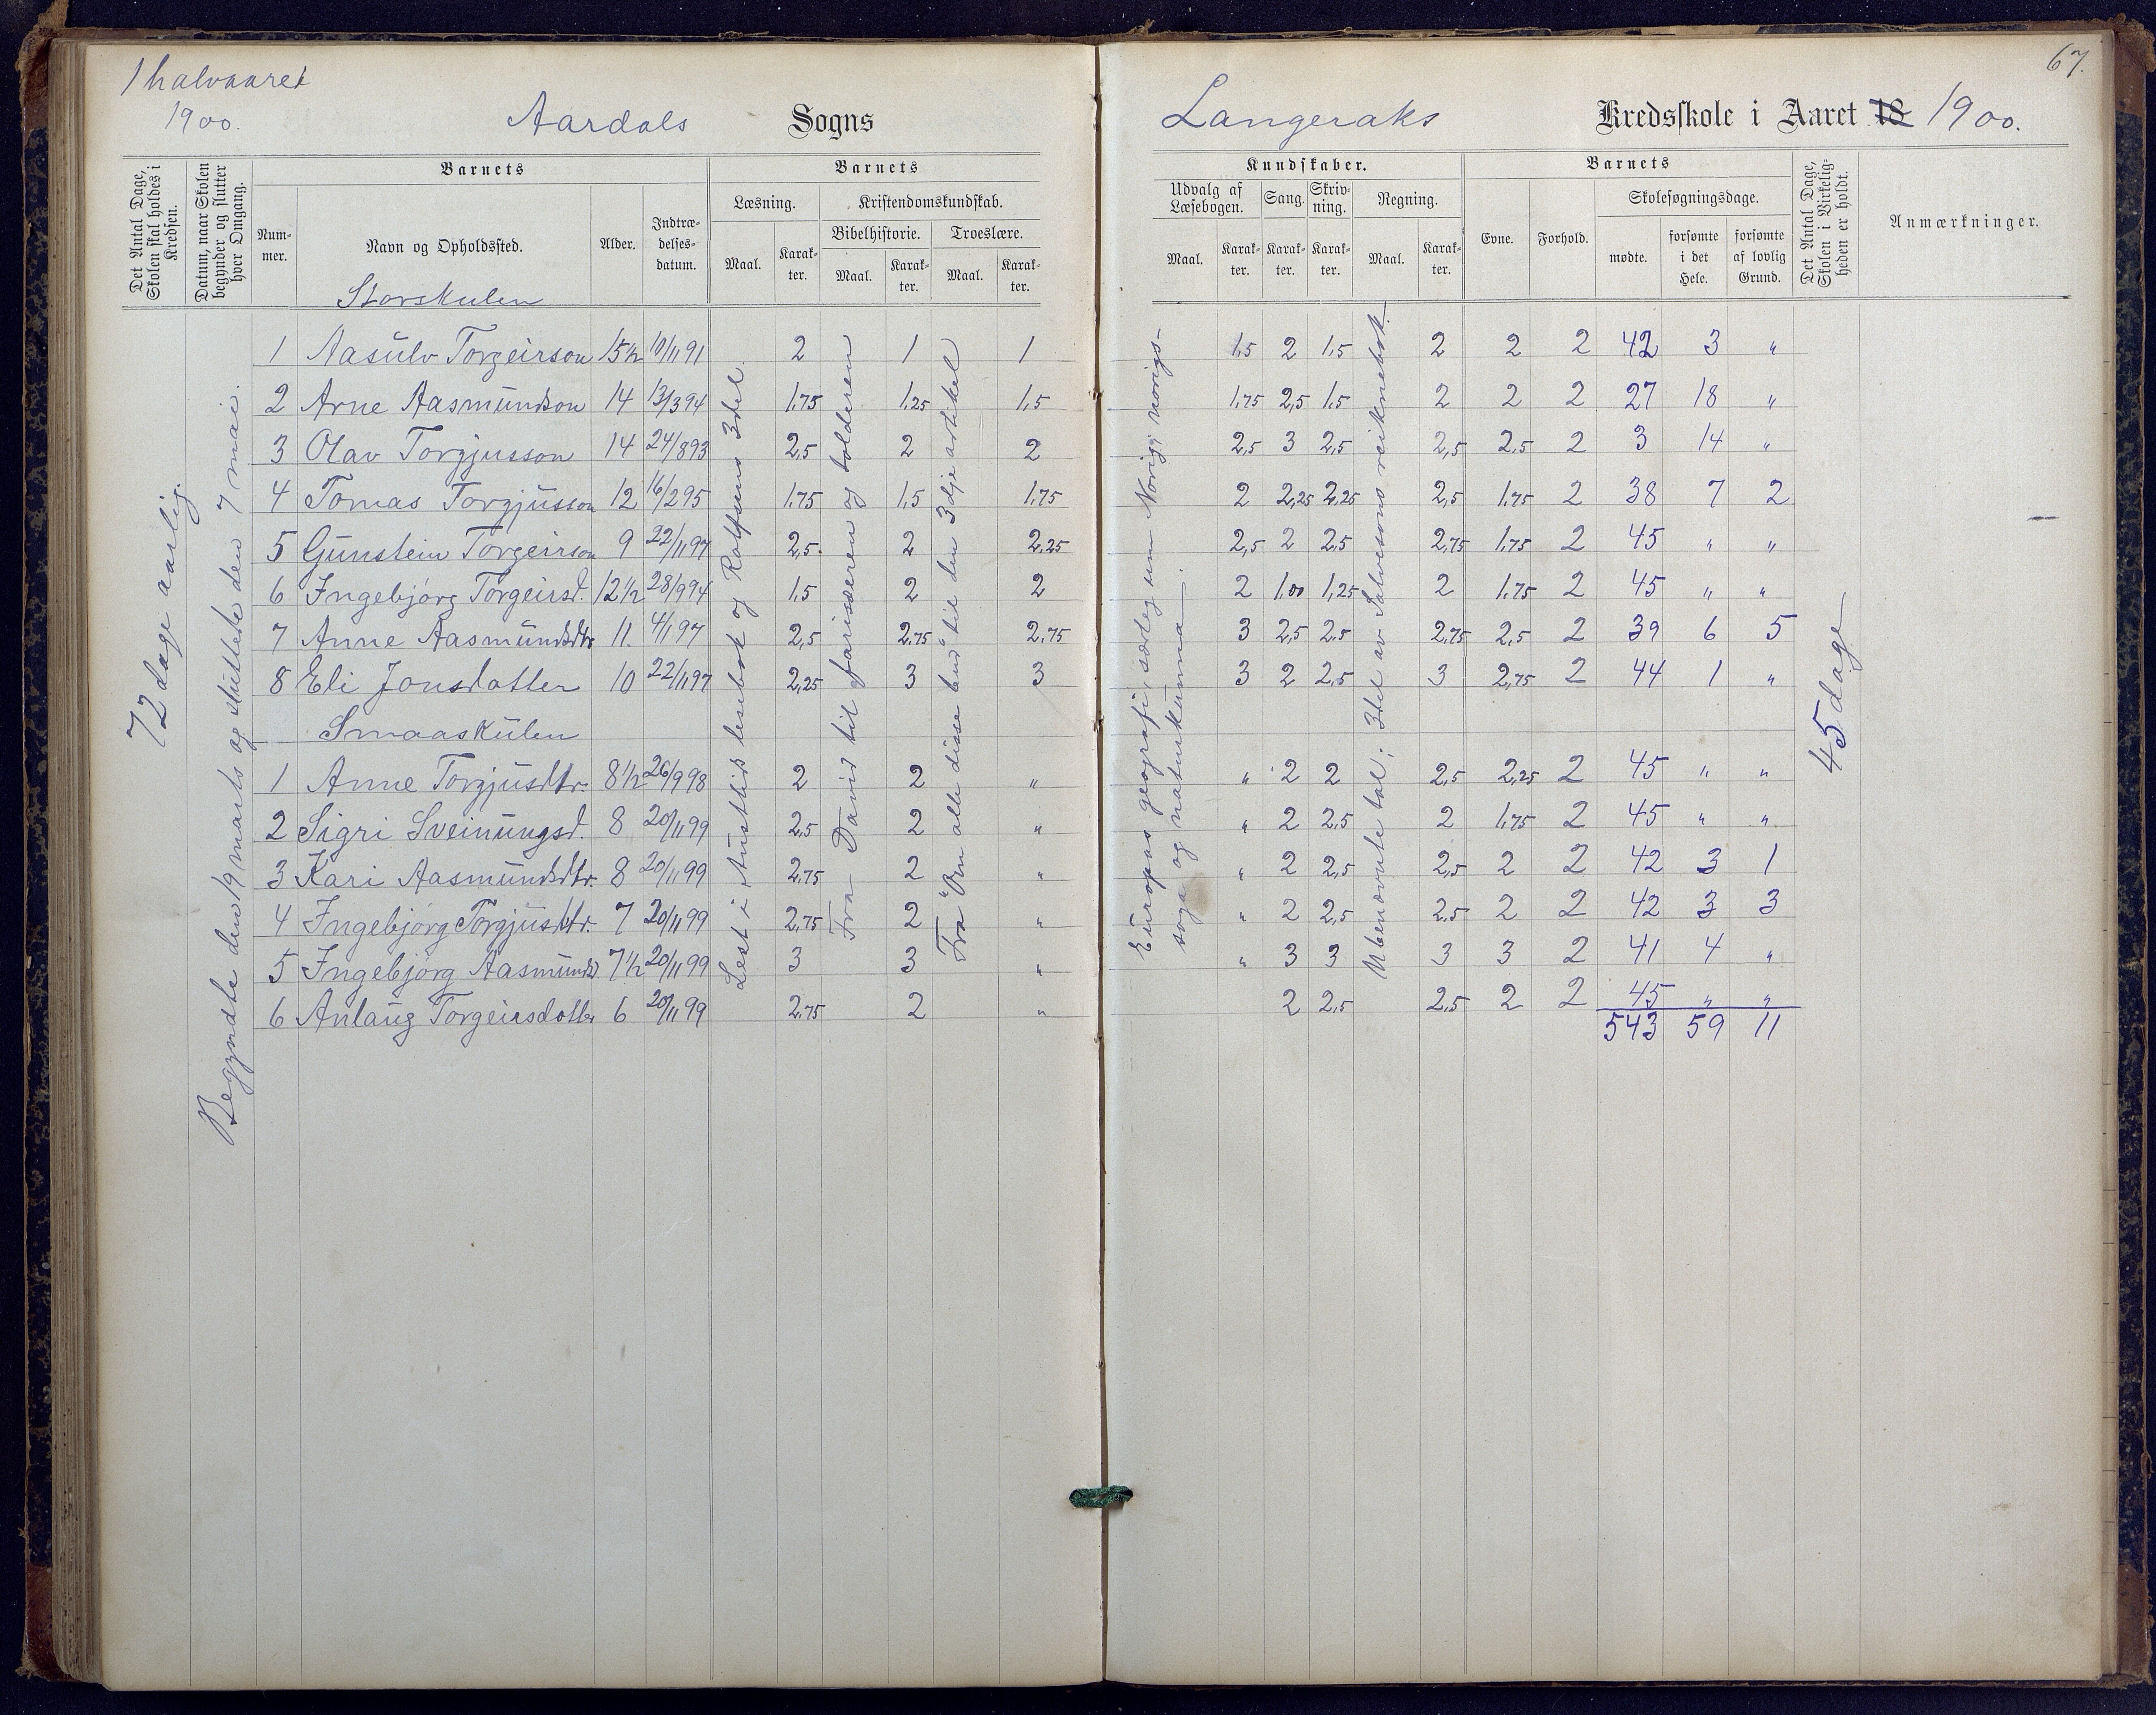 1 halvaaret
1900.
Aardals Sogns
Det Antal Dage, Skolen skal holdes i Kredsen.
Datum, naar Skolen begynder og slutter hver Omgang.
Barnets
Barnets
Num-mer.
Navn og Opholdssted.
Alder.
Indtræ-delses-datum.
Læsning.
Kristendomskundskab.
Bibelhistorie.
Troeslære.
Maal.
Karak-ter.
Maal.
Karak-ter.
Maal.
Karak-ter.
Storskulen
1 Aasulv Torgeirson 15½ 10/11 91 2 1 1
2 Arne Aasmundson 14 13/3 94 1.75 1.25 1.5
3 Olav Torgjusson 14 24/8 93 2,5 2 2
4 Tomas Torgjusson 12 16/2 95 1.75 1.5 1.75
5 Gunstein Torgeirson 9 22/11 97 2,5. 2 2.25
6 Ingebjörg Torgeirsd. 12½ 28/9 94 1.5 2 2
7 Anne Aasmundsdtr 11. 4/1 97 2,5 2.75 2.75
8 Eli Jonsdatter 10 22/11 97 2,25 3 3
Smaaskulen
1 Anne Torgjusdtr. 8½ 26/9 98 2 2 "
2 Sigri Sveinungsd. 8 20/11 99 2,5 2 "
3 Kari Aasmundsdtr. 8 20/11 99 2.75 2 "
4 Ingebjörg Torgjusdtr. 7 20/11 99 2.75 2 "
5 Ingebjörg Aasmunds. 7½ 20/11 99 3 3 "
6 Anlaug Torgeirsdotter 6 20/11 99 2.75 2 "
72 dage aarlig.
Begyndte den 19 marts og sluttede den 7 mai.
Lest i Austlid lesebok og Rolfsens 3del.
Fra David til farisæeren og tolderen
Fra "Om alle disse bud" til den 3dje artikel
67.
Langeraks Kredsskole i Aaret 18 1900.
Kundskaber.
Barnets
Det Antal Dage, Skolen i Virkelig-heden er holdt.
Anmærkninger.
Udvalg af Læsebogen.
Sang.
Skriv-ning.
Regning.
Evne.
Forhold.
Skolesøgningsdage.
Maal.
Karak-ter.
Karak-ter.
Karak-ter.
Maal.
Karak-ter.
mødte.
forsømte i det Hele.
forsømte af lovlig Grund.
1.5 2 1.5 2 2 2 42 3 "
1.75 2,5 1.5 2 2 2 27 18 "
2,5 3 2,5 2,5 2.5 2 3 14 "
2 2,25 2,25 2,5 1.75 2 38 7 2
2,5 2 2,5 2.75 1.75 2 45 " "
2 1,00 1,25 2 1.75 2 45 " "
3 2,5 2.5 2.75 2,5 2 39 6 5
3 2 2,5 3 2,75 2 44 1 "
" 2 2 2,5 2,25 2 45 " "
" 2 2,5 2 1.75 2 45 " "
" 2 2,5 2,5 2 2 42 3 1
" 2 2,5 2.5 2 2 42 3 3
" 3 3 3 3 2 41 4 "
2 2,5 2.5 2 2 45 " "
543 59 11
Europas geografi, særleg um Norig; norigs-
soga og naturkunna.
Ubenævnte tal; 3del av Salvesons reiknebok.
45 dage